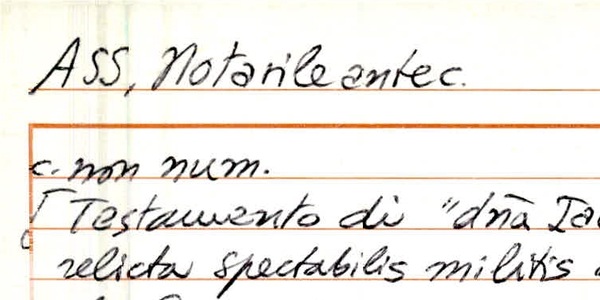 ASS, Notarile antec.
c. non num.
[Testamento di "dña
relicta spectabilis militis